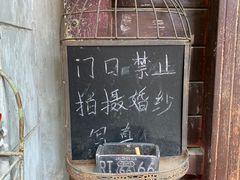 门口禁止
拍摄婚纱
写真
66